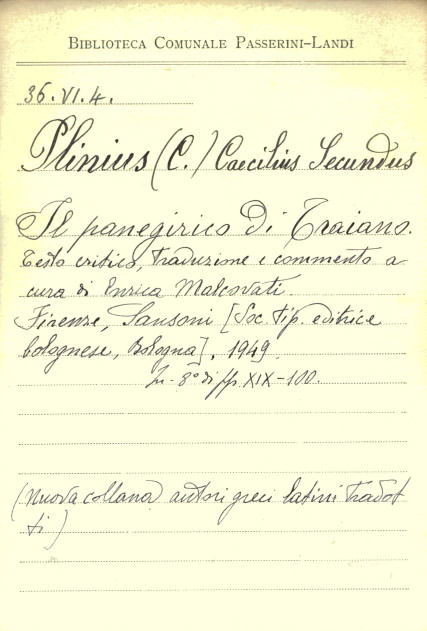 BIBLIOTECA COMUNALE PASSERINI-LANDI
36.VI.4.
Plinius (C.) Caecilius Secundus
Il panegirico di Traiano.
Testo critico, traduzione e commento a
cura di Enrica Malcovati.
Firenze, Sansoni [Soc. tip. editrice
bolognese, Bologna], 1949.
In-8° di pp. XIX-100.
(Nuova collana autori greci latini tradot
ti)